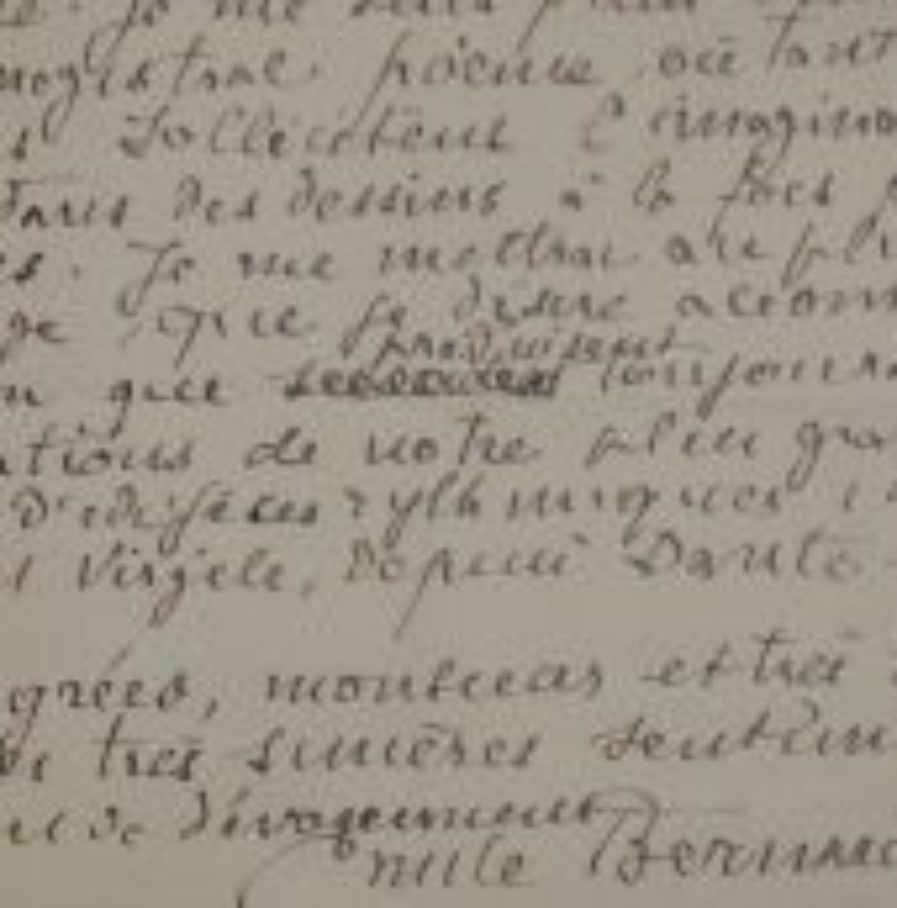 Je me
magistral poème où tant
s sollicitent l'imagina
dans des dessins à la fois
es. Je me mettrai au plu
ge que je désire accom
produisent
n que toujours
ations de notre plus gra
d'édifices rythmiques
t Virgile, depuis Dante
gréer, monsieur et très
de très sincères sentim
et de dévouement
mile Bernar